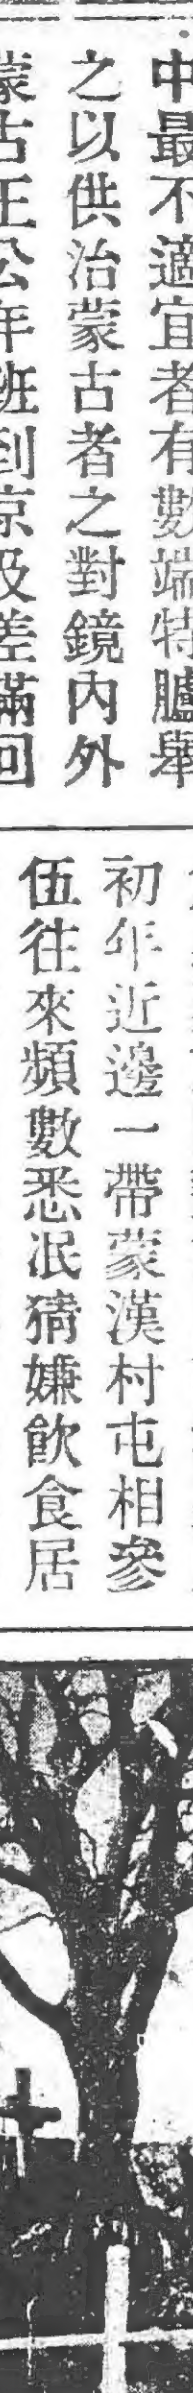 中最不適宜者有數端特臚舉
之以供治蒙古者之對鏡內外
蒙古王公年班到京及差滿回
初年近邊一帶蒙漢村屯相參
伍往來頻數悉泯猜嫌飲食居